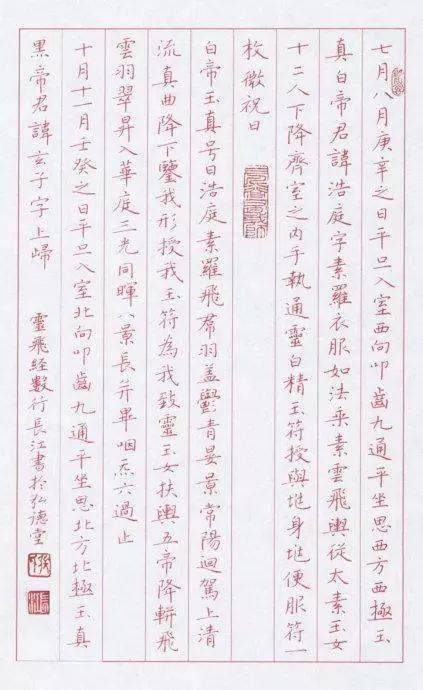 七月八月庚辛之日平旦入室西向叩齒九通平坐思西方西極玉
真白帝君諱浩庭字素羅衣服如法乘素雲飛輿從太素玉女
十二人下降齊室之内手執通靈白精玉符授與兆身兆便服符一
枚微祝曰
白帝玉真号曰浩庭素羅飛帬羽盖鬱青晏景常陽迴駕上清
流真曲降下鑒我形授我玉符為我致靈玉女扶輿五帝降軿飛
雲羽翠昇入華庭三光同暉八景長并畢咽炁六過止
十月十一月壬癸之日平旦入室北向叩齒九通平坐思北方北極玉真
黑帝君諱玄子字上歸
靈飛經數行長江書於弘德堂